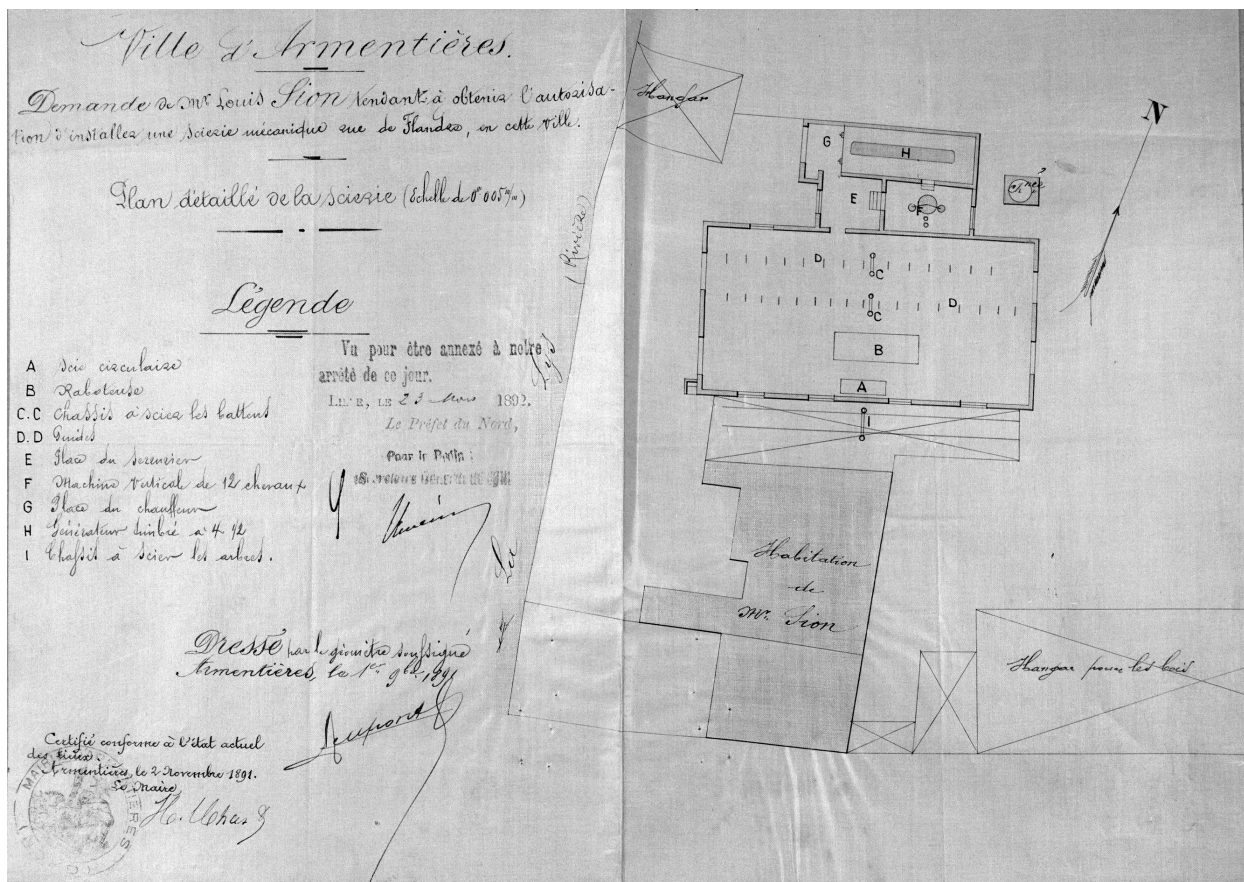 Ville d'Armentières.
Demande de Mr Louis Sion tendant à obtenir l'autorisa-
tion d'installer une scierie mécanique rue de Flandre, en cette ville.
Plan détaillé de la scierie (Echelle de 0m 005 m/m)
Légende
A Scie circulaire
B Raboteuse
C.C Chassis à scier les battens
D.D Guides
E Place du serrurier
F Machine Verticale de 12 chevaux
G Place du chauffeur
H Générateur timbré à 4 1/2
I Chassit à scier les arbres.
Vu pour être annexé à notre
arrêté de ce jour.
LILLE, LE 23 Mars 1892.
Le Préfet du Nord,
Pour le Préfet :
Le Secrétaire Général
Dressé par le géomètre soussigné
Armentières, le 1er 9bre 1891
Certifié conforme à l'état actuel
des lieux.
Armentières, le 2 Novembre 1891.
Le Maire
MAIRIE
Hangar
N
G
H
E
F
ch née
D
C
C
D
B
A
I
(Rivière)
Lys
La
Habitation
de
Mr. Sion
Hangar pour les bois